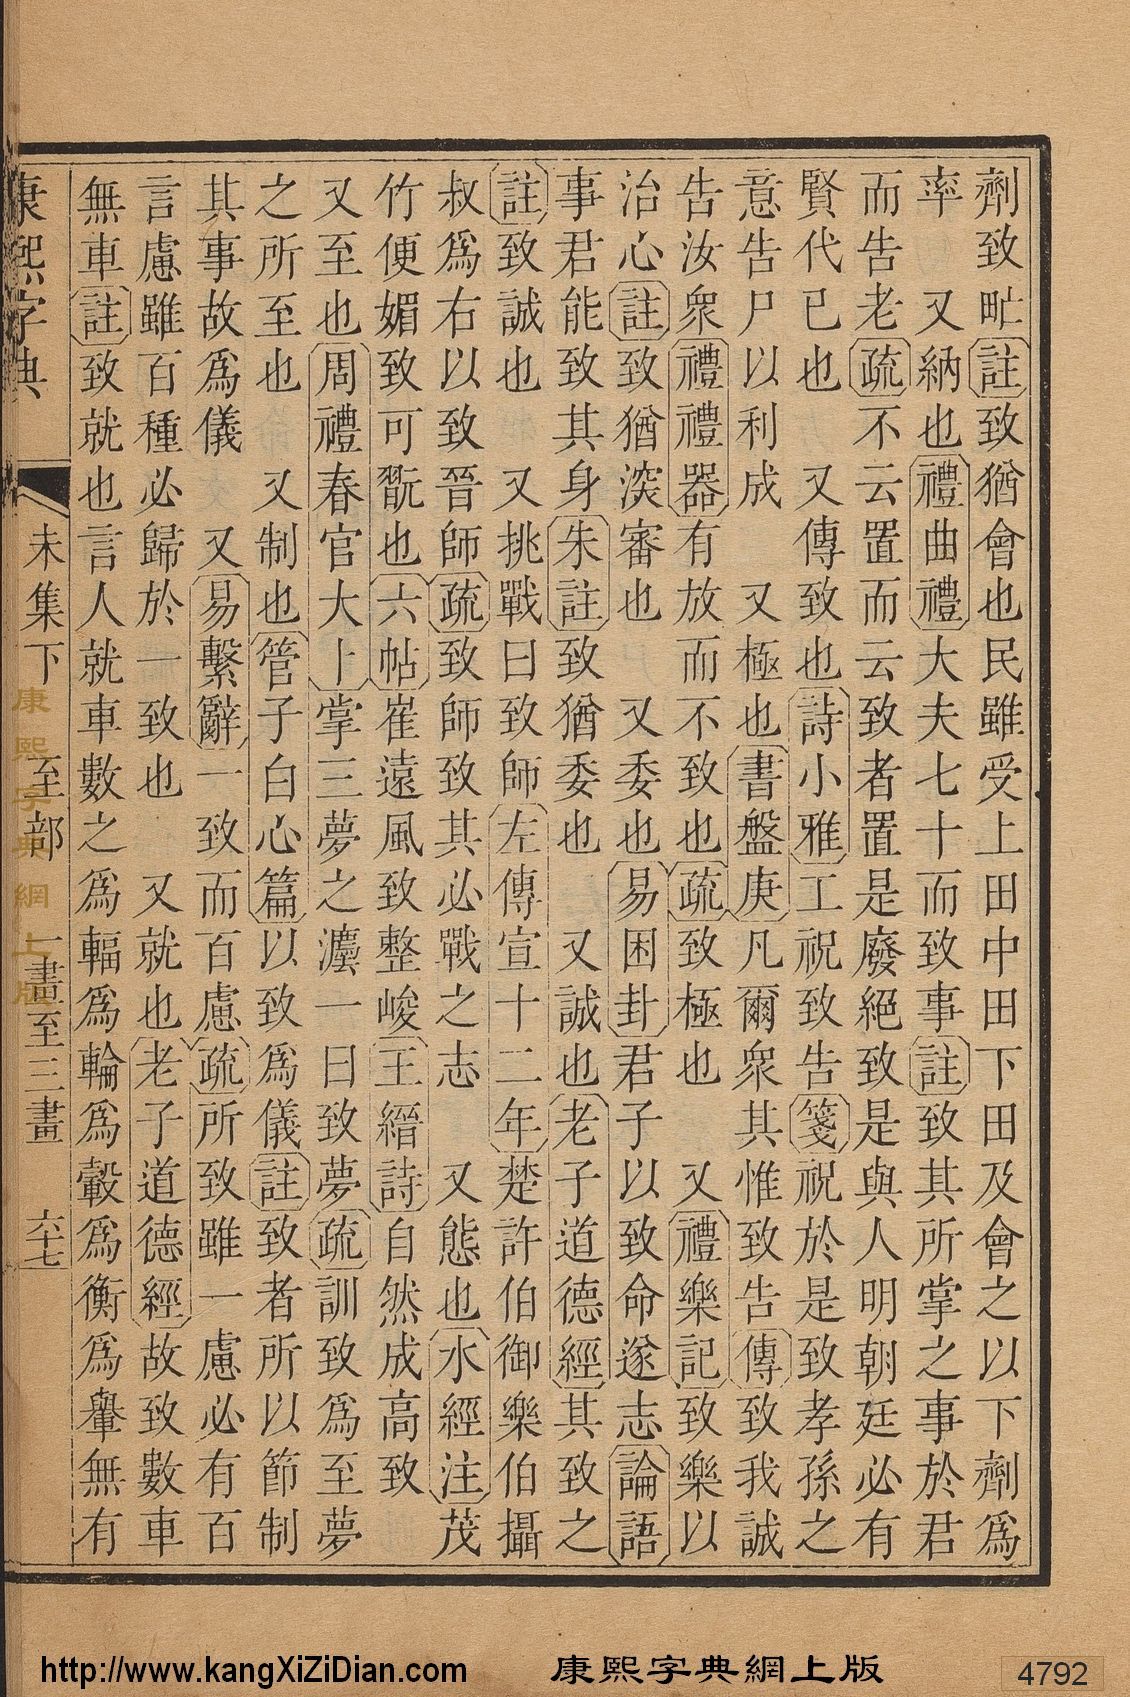 劑致甿註致猶會也民雖受上田中田下田及會之以下劑爲
率　又納也禮曲禮大夫七十而致事註致其所掌之事於君
而告老疏不云置而云致者置是廢絕致是與人明朝廷必有
賢代已也　又傳致也詩小雅工祝致告箋祝於是致孝孫之
意告尸以利成　又極也書盤庚凡爾衆其惟致告傳致我誠
告汝衆禮禮器有放而不致也疏致極也　又禮樂記致樂以
治心註致猶深審也　又委也易困卦君子以致命遂志論語
事君能致其身朱註致猶委也　又誠也老子道德經其致之
註致誠也　又挑戰曰致師左傳宣十二年楚許伯御樂伯攝
叔爲右以致晉師疏致師致其必戰之志　又態也水經注茂
竹便娟致可翫也六帖崔遠風致整峻王縉詩自然成高致
又至也周禮春官大卜掌三夢之灋一曰致夢疏訓致爲至夢
之所至也　又制也管子白心篇以致爲儀註致者所以節制
其事故爲儀　又易繫辭一致而百慮疏所致雖一慮必有百
言慮雖百種必歸於一致也　又就也老子道德經故致數車
無車註致就也言人就車數之爲輻爲輪爲轂爲衡爲轝無有
康熙字典　未集下　至部　一畫至三畫　六十七
康熙字典網上版
http://www.kangXiZiDian.com　康熙字典網上版　4792